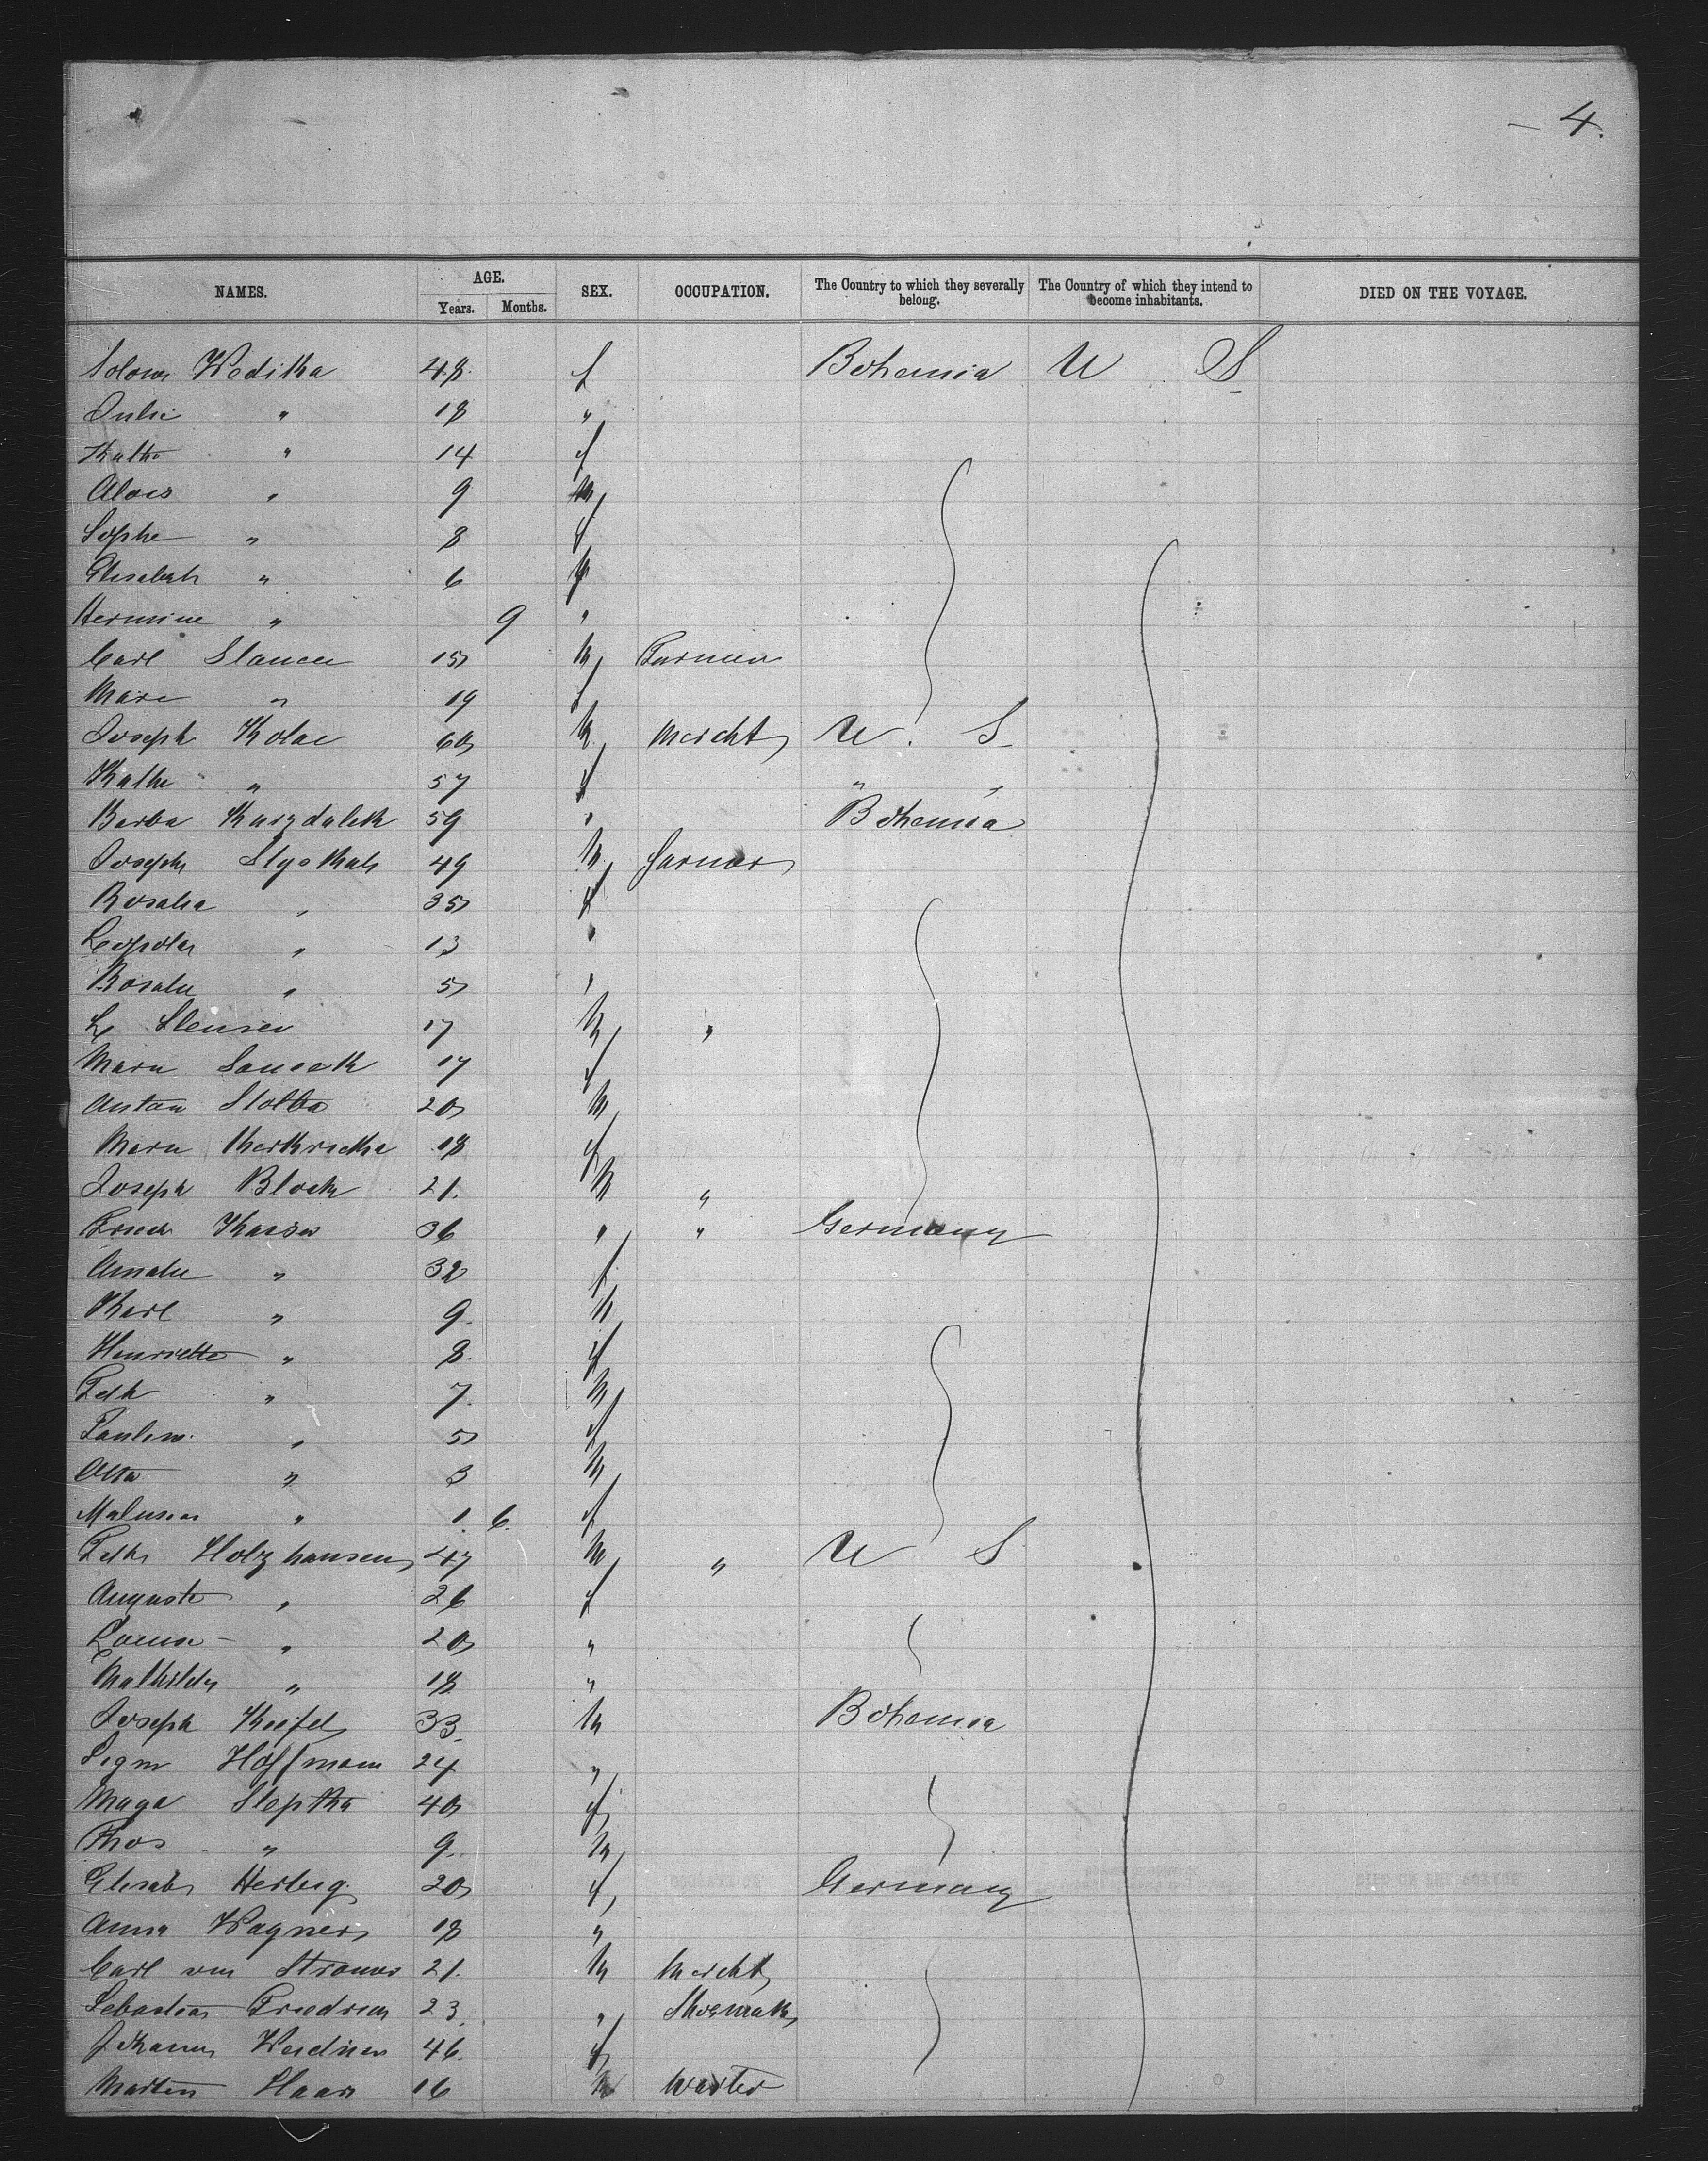 - 4.
NAMES. AGE. Years. Months. SEX. OCCUPATION. The Country to which they severally belong. The Country of which they intend to become inhabitants. DIED ON THE VOYAGE.
Woditka 48 f Bohemia U S
Julie " 18 "
Kathe " 14 f
Alois " 9 m
Sophe " 8 f
Elisabeth " 6
Hermine " 9 "
Carl 15 m Farmer
Marie " 19 f
Joseph Kolar 60 m Mercht U. S.
Kathe " 57 f " "
Barba Kasrdalek 59 " Bohemia
Joseph 49 m farmer
Rosalia " 35 f
Leopold " 13 "
Rosalie " 5 "
17 m "
Marie 17 f
Anton Stolba 20 m
Marie 18 f
Joseph Block 21. m "
Friedr Kaiser 36 " " Germany
Amalie " 32 f
Karl " 9. m
Henriette " 8. f
" 7. m
Paulin. " 5 f
Otto " 3 m
" 1. 6. f
Holzhausen 47 m " U S
Auguste " 26 f
Louise " 20 "
Mathilde " 18 "
Joseph 33. m Bohemia
Sigm Hoffmann 24 "
Sleptka 40 f
Thos " 9. m
Elisab Herberg 20 f Germany
Anna Wagner 18 "
Carl von 21. m Mercht
Sebastian Friedrich 23. " Shoemak
Johanna Weidner 46. f
Martin Haas 16 m Waiter